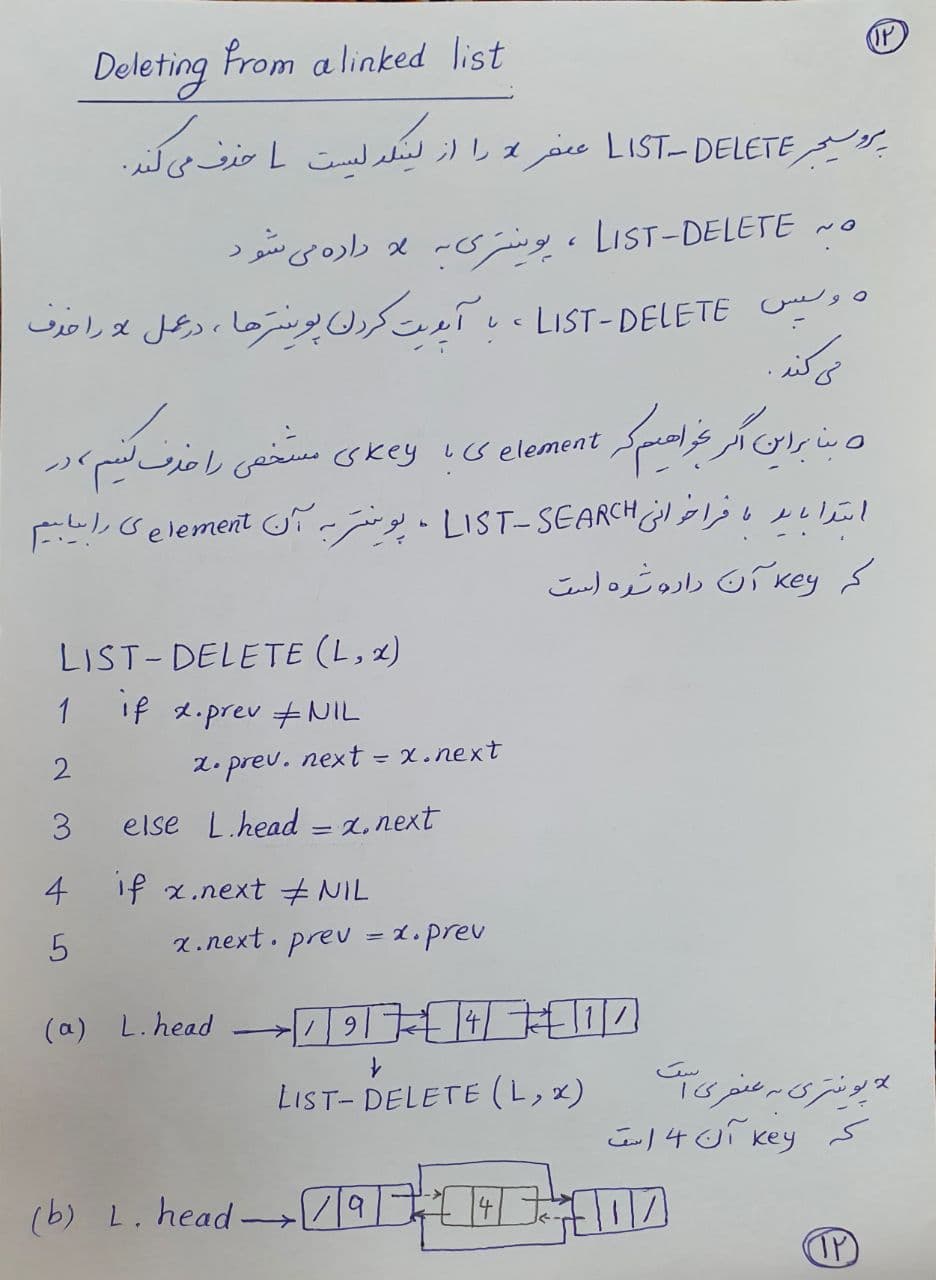 ۱۲
Deleting from a linked list
پروسیجر LIST-DELETE عنصر x را از لینکد لیست L حذف می‌کند.
o به LIST-DELETE ، پوینتری به x داده می‌شود
o و سپس LIST-DELETE ، با آپدیت کردن پوینترها، در عمل x را حذف
می‌کند.
o بنابراین اگر بخواهیم که elementی با keyی مشخصی را حذف کنیم، در
ابتدا باید با فراخوانی LIST-SEARCH ، پوینتر به آن elementی را بیابیم
که key آن داده شده است
LIST-DELETE (L, x)
1 if x.prev ≠ NIL
2 x.prev.next = x.next
3 else L.head = x.next
4 if x.next ≠ NIL
5 x.next.prev = x.prev
(a) L.head → / 9 4 1 /
↓
LIST-DELETE (L, x)
x پوینتری به عنصری است
که key آن 4 است
(b) L.head → / 9 4 1 /
۱۲